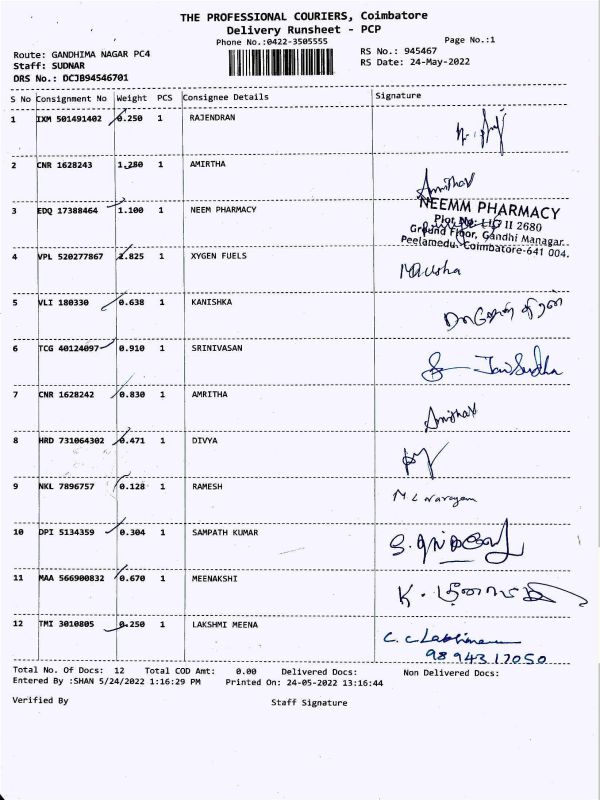 THE PROFESSIONAL COURIERS, Coimbatore
Delivery Runsheet - PCP
Phone No.:0422-3505555
Page No.:1
Route: GANDHIMA NAGAR PC4
RS No.: 945467
Staff: SUDNAR
RS Date: 24-May-2022
DRS No.: DCJB94546701
S No Consignment No Weight PCS Consignee Details Signature
1 IXM 501491402 0.250 1 RAJENDRAN
2 CNR 1628243 1.280 1 AMIRTHA
3 EDQ 17388464 1.100 1 NEEM PHARMACY
NEEMM PHARMACY
Plot No: LIG II 2680
Ground Floor, Gandhi Managar
Peelamedu, Coimbatore-641 004.
4 VPL 520277867 2.825 1 XYGEN FUELS
5 VLI 180330 0.638 1 KANISHKA
6 TCG 40124097 0.910 1 SRINIVASAN
7 CNR 1628242 0.830 1 AMRITHA
8 HRD 731064302 0.471 1 DIVYA
9 NKL 7896757 0.128 1 RAMESH M L Narayan
10 DPI 5134359 0.304 1 SAMPATH KUMAR
11 MAA 566900832 0.670 1 MEENAKSHI
12 TMI 3010805 0.250 1 LAKSHMI MEENA
9894317050
Total No. Of Docs: 12 Total COD Amt: 0.00 Delivered Docs: Non Delivered Docs:
Entered By :SHAN 5/24/2022 1:16:29 PM Printed On: 24-05-2022 13:16:44
Verified By Staff Signature